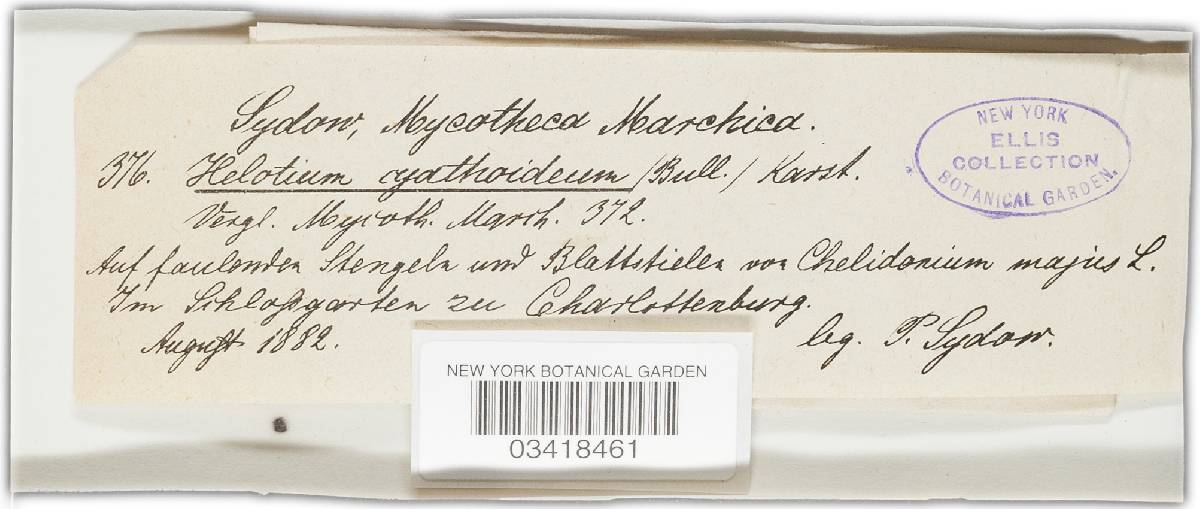 Sydow, Mycotheca Marchica.
376. Helotium cyathoideum (Bull.) Karst.
Vergl. Mycoth. March. 372.
Auf faulenden Stengeln und Blattstielen von Chelidonium majus L.
Im Schloßgarten zu Charlottenburg.
August 1882.
leg. P. Sydow.
NEW YORK
ELLIS
COLLECTION
BOTANICAL GARDEN.
NEW YORK BOTANICAL GARDEN
03418461